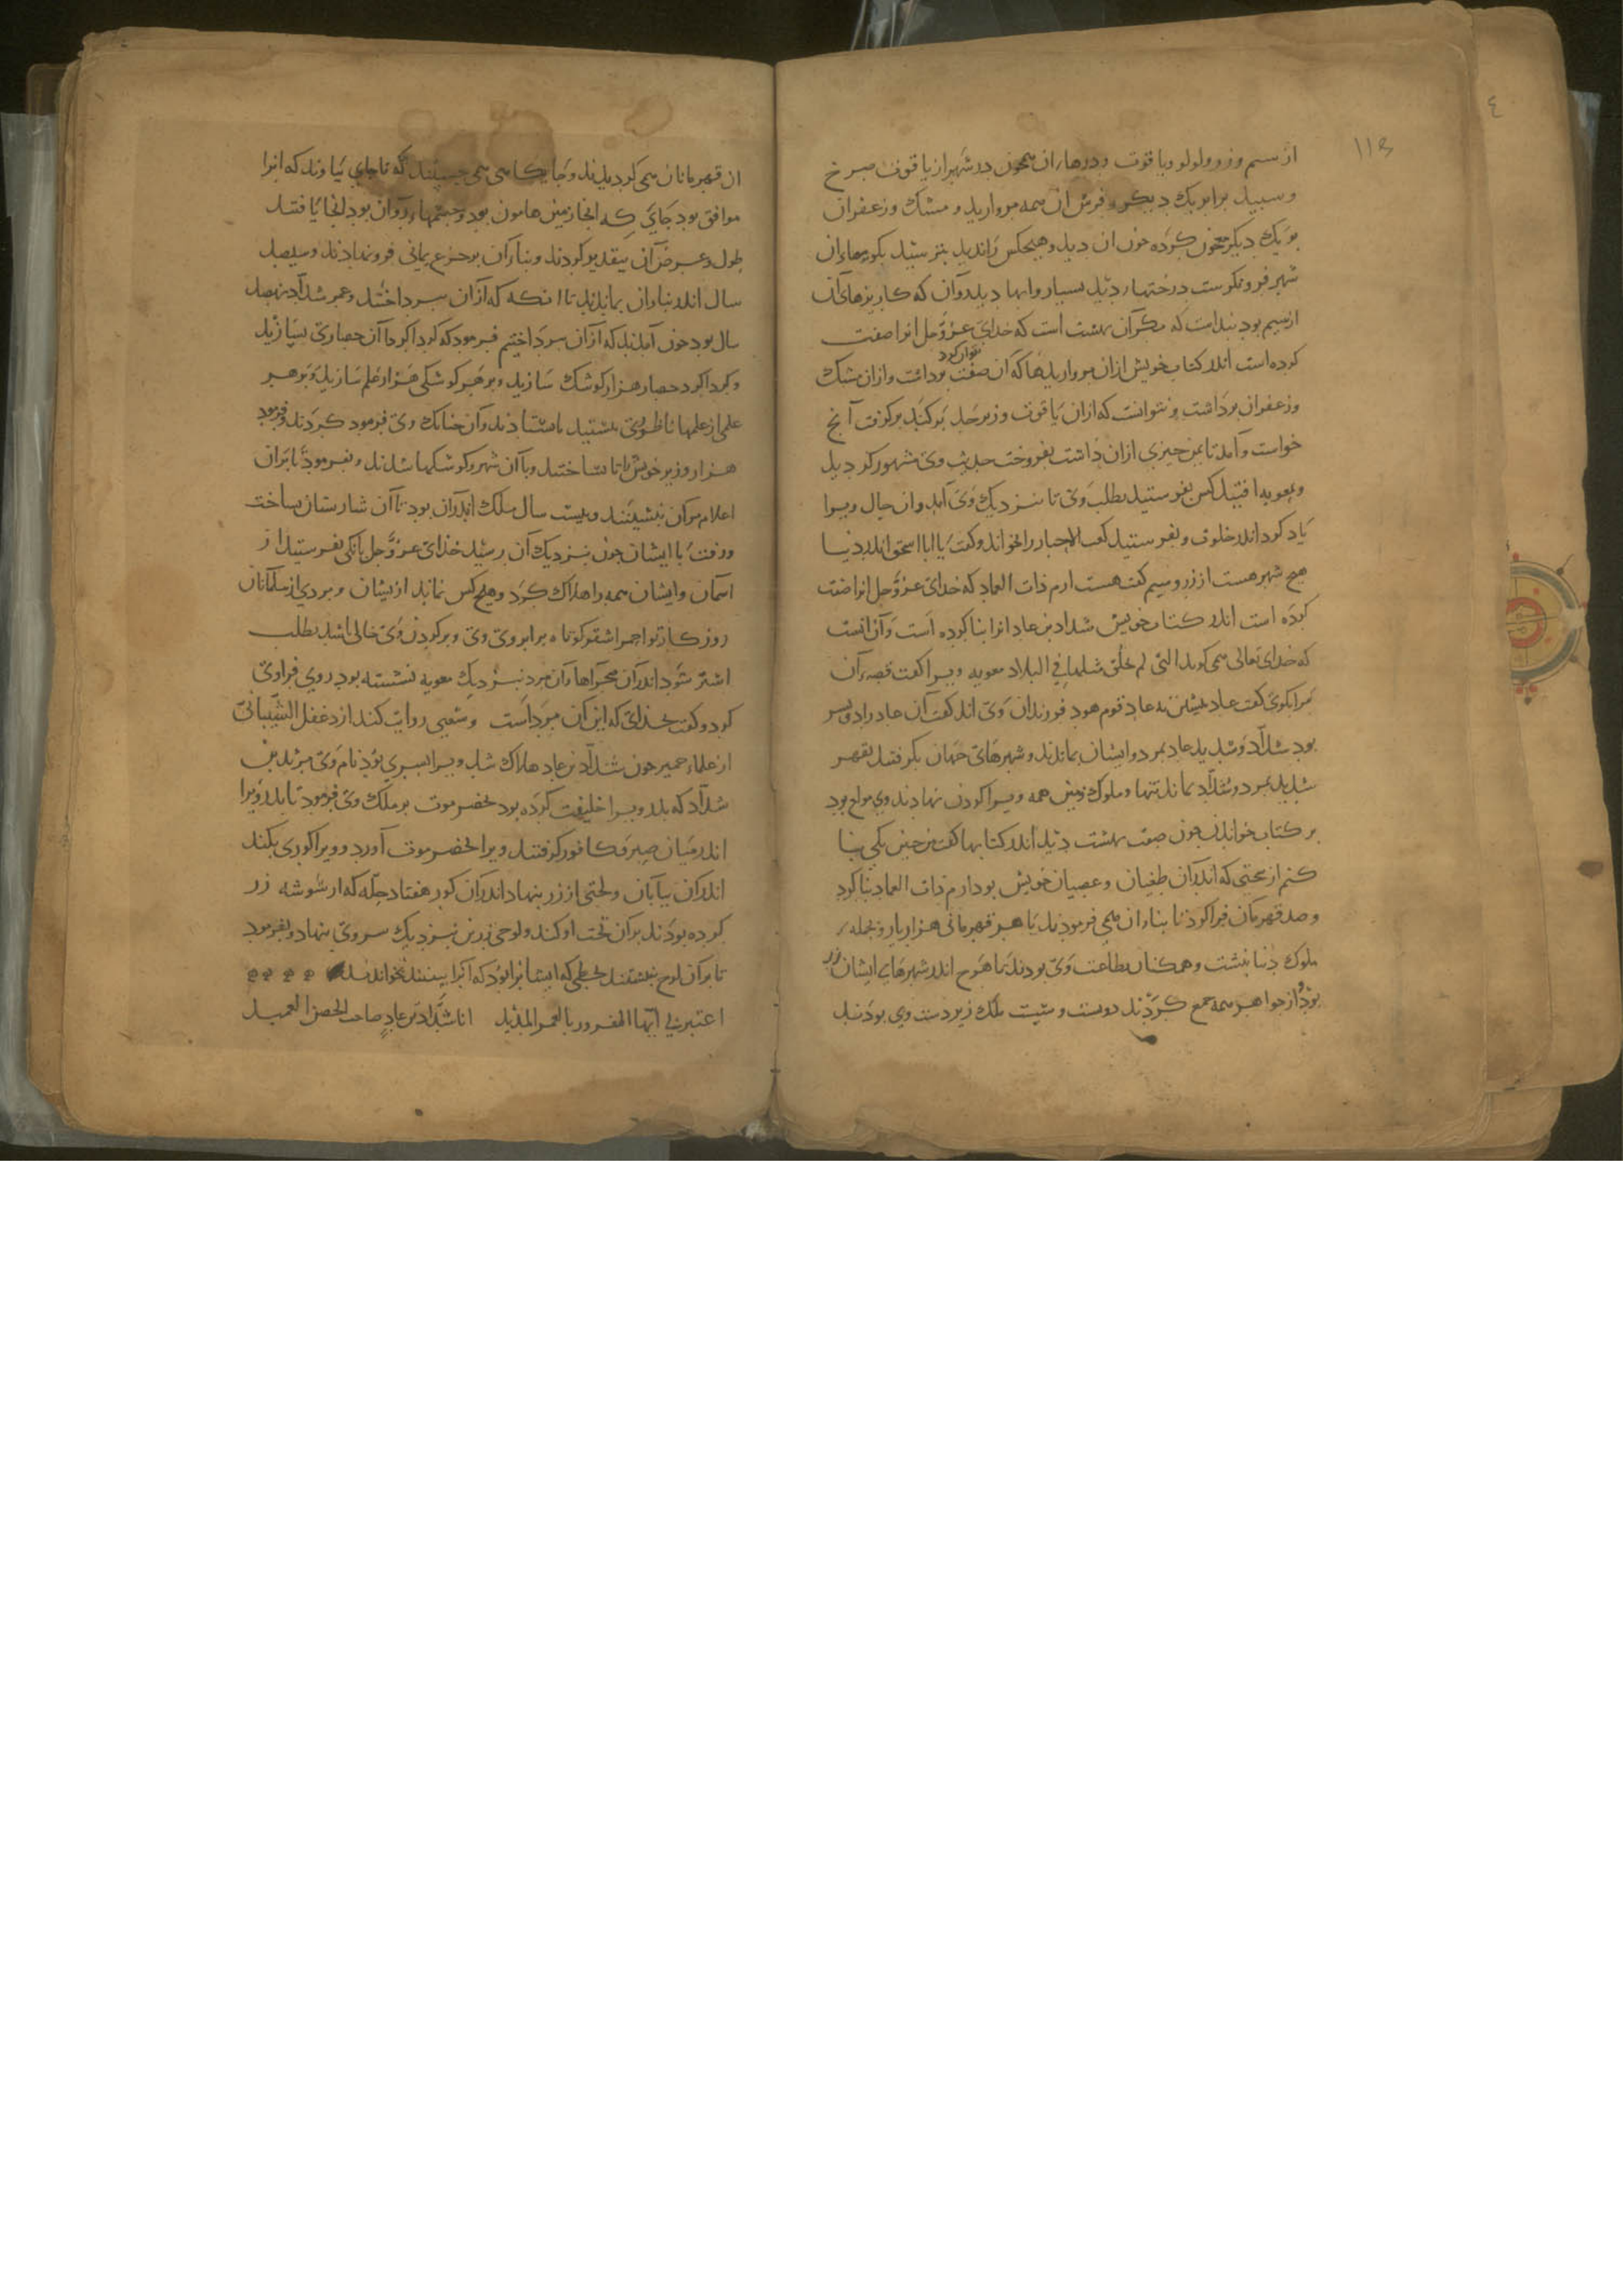 از سیم و زر و لولو و یاقوت و درهاء آن همچون در شهر از یاقوت سرخ
و سپید برابر یک دیگر و فرش آن همه مروارید و مشک و زعفران
بر یک دیگر معجون کرده چون آن دید و هیچکس را ندید بترسید بکویهاء آن
شهر فرو نگرست درختها دید بسیار و آبها دید روان که کاریزهای آن
از سیم بود پنداشت که مگر آن بهشت است که خدای عز و جل انرا صفت
کرده است اندر کتاب خویش ازان مرواریدها که آن صفت نتوان کرد برداشت و ازان مشک
و زعفران برداشت و نتوانست که ازان یاقوت و زبرجد برکند برگرفت آنچ
خواست و آمد تا یمن چیزی ازان داشت بفروخت حدیث وی مشهور گردید
و بمعویه افتید کس بفرستید بطلب وی تا بنزدیک وی آمد و ان حال ویرا
یاد کرد اندر خلوت و بفرستید کعب الاحبار را بخواند و گفت یا ابا اسحق اندر دنیا
هیچ شهر هست از زر و سیم گفت هست ارم ذات العماد که خدای عز و جل انرا صفت
کرده است اندر کتاب خویش شداد بن عاد انرا بنا کرده است و آن انست
که خدای تعالی همی گوید التی لم یخلق مثلها فی البلاد معویه ویرا گفت قصهء آن
مرا بگوی گفت عاد پیشین نه عاد قوم هود فرزندان وی اند گفت آن عاد را دو پسر
بود شداد و شدید عاد بمرد و ایشان بماندند و شهرهای جهان بگرفتند بقهر
شدید بمرد و شداد بماند تنها و ملوک زمین همه ویرا گردن نهادند وی مولع بود
بر کتاب خواندن چون صفت بهشت دید اندر کتابها گفت من چنین یکی بنا
کنم از سختی که اندر آن طغیان و عصیان خویش بود ارم ذات العماد بنا کرد
و صد قهرمان فرا کرد تا بناء آن همی فرمودند با هر قهرمانی هزار یار و بجمله
ملوک دنیا بنشت و همگنان بطاعت وی بودند تا هرچ اندر شهرهای ایشان زر
بود و از جواهر همه جمع کردند دویست و شیست ملک زیردست وی بودند
ان قهرمانان همی گردیدند و جایگاهی همی جستند که تا جای بیاوند که انرا
موافق بود جایی که انجا زمین هامون بود و چشمهاء روان بود انجا یافتند
طول و عرض آن بتقدیر کردند و بناء آن بر جزع یمانی فرو نهادند و سیصد
سال اندر بناء ان بماندند تا انگه که ازان بپرداختند و عمر شداد نهصد
سال بود چون آمدند که ازان بپرداختیم فرمود که گرداگرد آن حصاری بسازید
و گرداگرد حصار هزار کوشک سازید و بر هر کوشکی هزار علم سازید و بر هر
علمی از علمها ناظوری بنشستید باستادند و آن چنانک وی فرمود کردند و فرمود
هزار وزیر خویش را تا بساختند و با آن شهر و کوشکها شدند و بفرمود تا بران
اعلام مرکان بنشینند و بیست سال ملک اندران بود تا آن شارستان بساخت
و رفت با ایشان چون بنزدیک آن رسید خدای عز و جل بانگی بفرستید از
آسمان و ایشان همه را هلاک کرد و هیچ کس نماند از ایشان و مردی از مسلمانان
روزگار تو احمر اشقر کوتاه بر ابروی وی و بر گردن وی خالی باشد بطلب
اشتر شود اندر آن صحراها و آن مرد بنزدیک معویه نشسته بود روی فرا وی
کرد و گفت بخدای که این آن مرد است و شعبی روایت کند از دغفل الشیبانی
از علماء حمیر چون شداد بن عاد هلاک شد ویرا پسری بود نام وی مرثد بن
شداد که پدر ویرا خلیفت کرده بود بحضرموت بر ملک وی فرمود تا پدر ویرا
اندر میان صبر و کافور گرفتند و برا بحضرموت آورد و ویرا گوری بکند
اندر آن بیابان و تختی از زر بنهاد اندران گور هفتاد حله که از شوشه زر
کرده بودند بران تخت اوکند و لوحی زرین نزدیک سر وی بنهاد و بفرمود
تا بر آن لوح نبشتند بخطی که ایشانرا بود که آنرا ببینند بخوانند
اعتبرنی ایها المغرور بالعمر المدید انا شداد بن عاد صاحب الحصن العمید